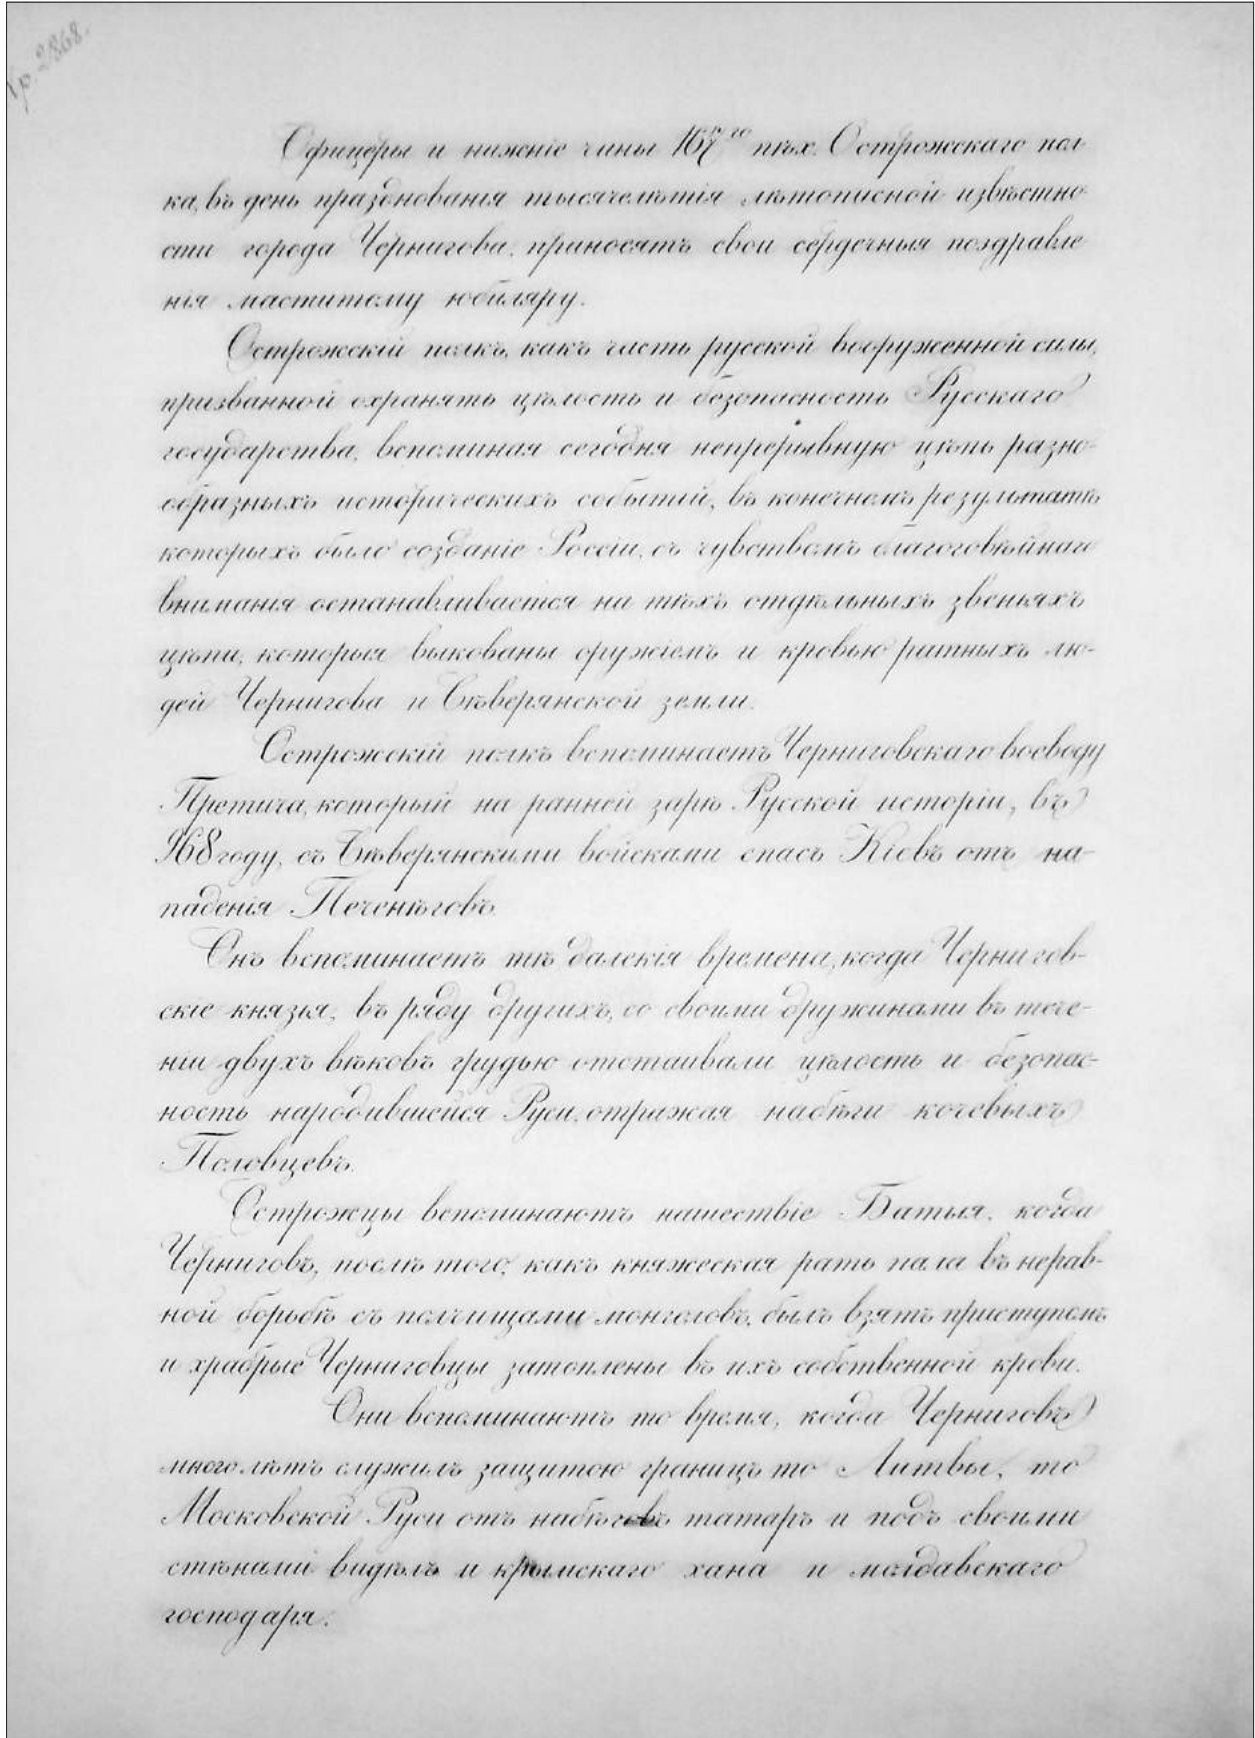 Гр. 2868.
Офицеры и нижніе чины 167го пѣх. Острожскаго пол-
ка, въ день празднованія тысячелѣтія лѣтописной извѣстно-
сти города Чернигова, приносятъ свои сердечныя поздравле
нія маститому юбиляру.
Острожскій полкъ, какъ часть русской вооруженной силы,
призванной охранять цѣлость и безопасность Русскаго
государства, вспоминая сегодня непрерывную цѣпь разно-
образныхъ историческихъ событій, въ конечномъ результатѣ
которыхъ было созданіе Россіи, съ чувствомъ благоговѣйнаго
вниманія останавливается на тѣхъ отдѣльныхъ звеньяхъ
цѣпи, которыя выкованы оружіемъ и кровью ратныхъ лю-
дей Чернигова и Сѣверянской земли.
Острожскій полкъ вспоминаетъ Черниговскаго воеводу
Претича, который на ранней зарѣ Русской исторіи, въ
968 году, съ Сѣверянскими войсками спасъ Кіевъ отъ на-
паденія Печенѣговъ.
Онъ вспоминаетъ тѣ далекія времена, когда Чернигов-
скіе князья, въ ряду другихъ, со своими дружинами въ тече-
ніи двухъ вѣковъ грудью отстаивали цѣлость и безопас-
ность народившейся Руси, отражая набѣги кочевыхъ
Половцевъ.
Острожцы вспоминаютъ нашествіе Батыя, когда
Черниговъ, послѣ того, какъ княжеская рать пала въ нерав-
ной борьбѣ съ полчищами монголовъ, былъ взятъ приступомъ
и храбрые Черниговцы затоплены въ ихъ собственной крови.
Они вспоминаютъ то время, когда Черниговъ
много лѣтъ служилъ защитою границъ то Литвы, то
Московской Руси отъ набѣговъ татаръ и подъ своими
стѣнами видѣлъ и крымскаго хана и молдавскаго
господаря.